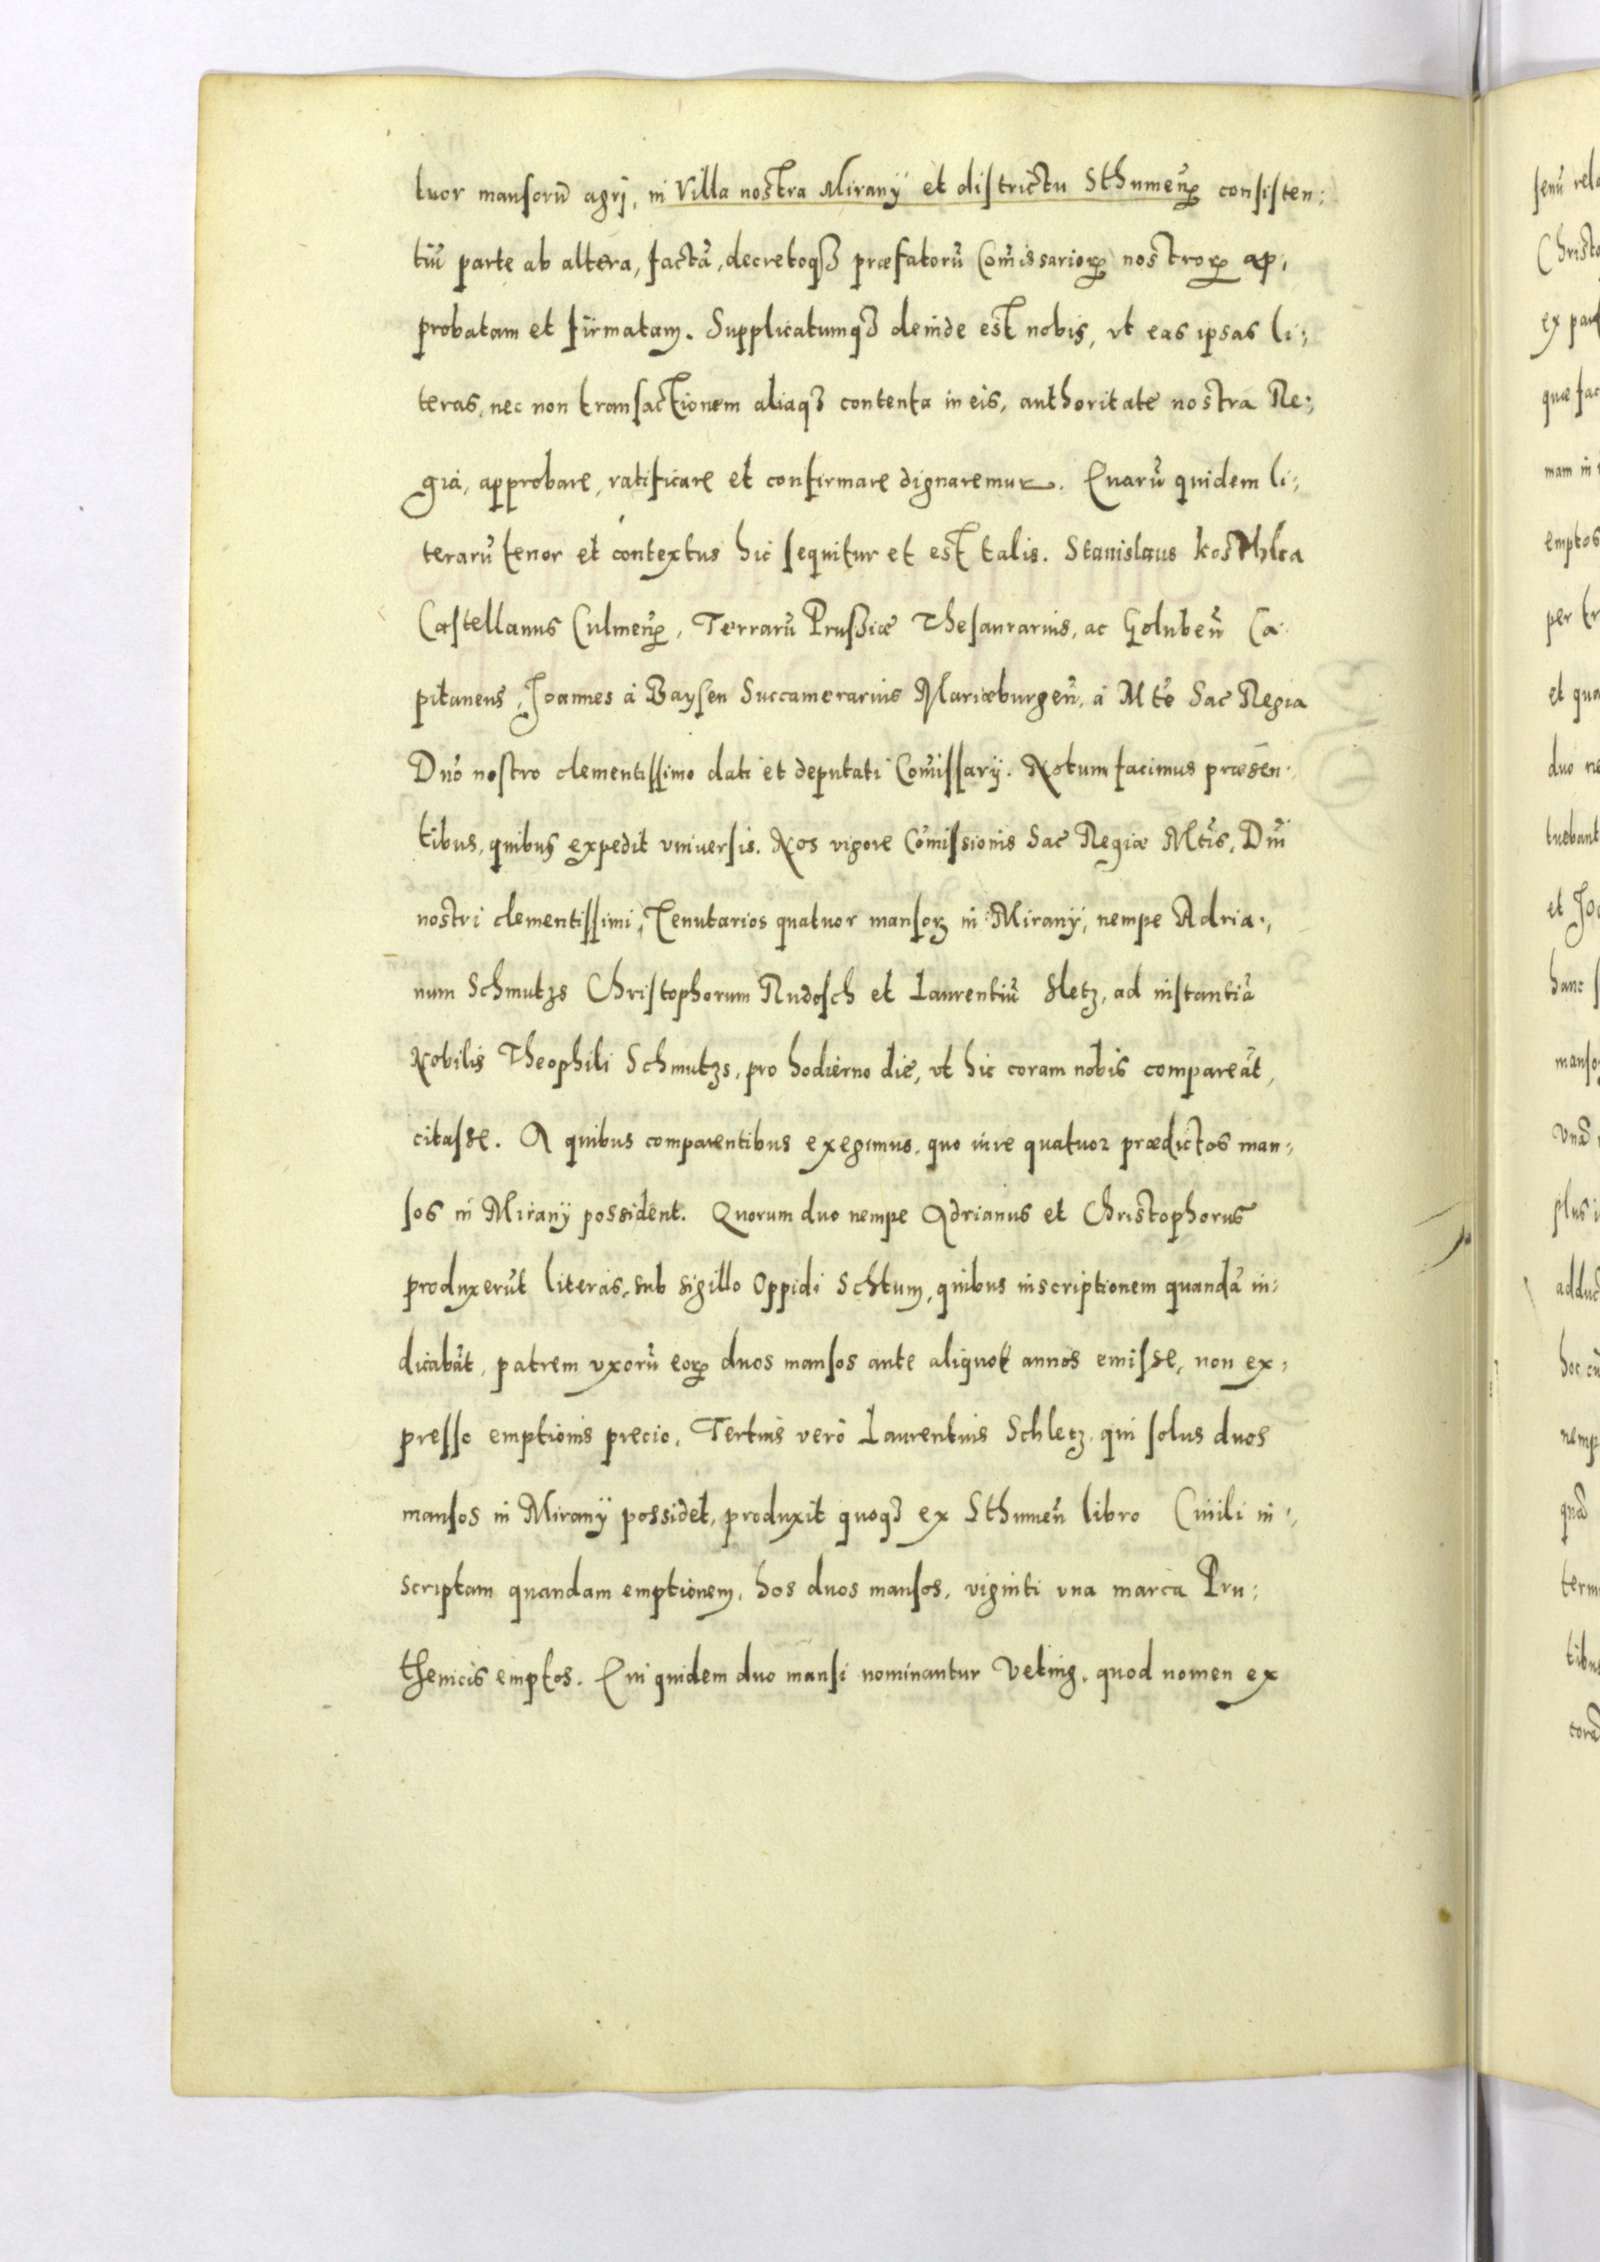 tuor mansorũ agrj, in Villa nostra Mirany et districtu Sthumeñ consisten:
tiũ parte ab altera, factã, decretoqꝫ præfatorũ Com̃issarioꝝ nostroꝝ ap:
probatam et firmatam. Supplicatumqꝫ deinde est nobis, vt eas ipsas li:
teras, nec non transactionem aliaqꝫ contenta in eis, authoritate nostra Re:
gia, approbare, ratificare et confirmare dignaremur. Quarũ quidem li:
terarũ tenor et contextus hic sequitur et est talis. Stanislaus Kosthka
Castellanus Culmeñ, Terrarũ Prussiæ Thesaurarius, ac Golubeñ Ca
pitaneus, Joannes à Baysen Succamerarius Mariæburgeñ, à Mte Sac Regia
Dño nostro clementissimo dati et deputati Com̃issarÿ. Notum facimus præsen:
tibus, quibus expedit vniuersis. Nos vigore Com̃issionis Sac Regiæ Mtis, Dñi
nostri clementissimi, Tenutarios quatuor mansoꝝ in Mirany, nempe Adria:
num Schmutzs Christophorum Rudosch et Laurentiũ Sletz, ad instantiã
Nobilis Theophili Schmutzs, pro hodierno die, vt hic coram nobis compareãt,
citasse. A quibus comparentibus exegimus, quo iure quatuor prædictos man:
sos in Miranÿ possident. Quorum duo nempe Adrianus et Christophorus
produxerũt literas, sub sigillo Oppidi Schtum, quibus inscriptionem quandã in:
dicabãt, patrem vxorũ eoꝝ duos mansos ante aliquot annos emisse, non ex:
presso emptionis precio, Tertius verò Laurentius Schletz, qui solus duos
mansos in Miranÿ possidet, produxit quoqꝫ ex Sthumeñ libro Ciuili in:
scriptam quandam emptionem, hos duos mansos, viginti vna marca Pru:
thenicis emptos. Qui quidem duo mansi nominantur Veting, quod nomen ex